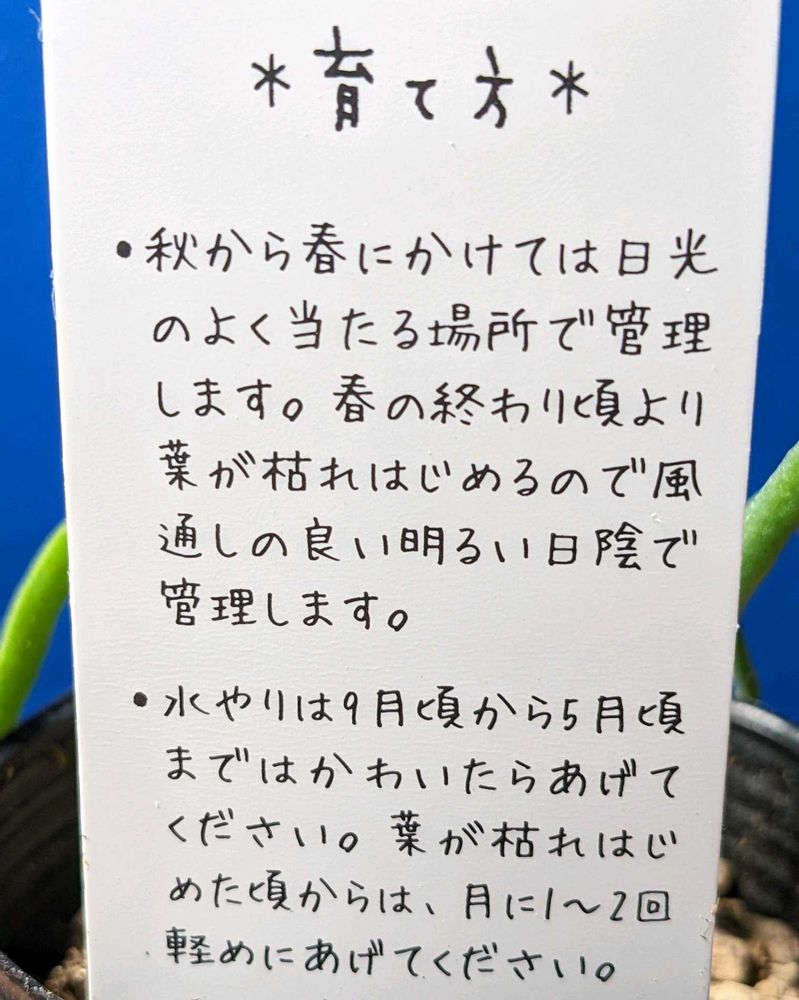 *育て方*
•秋から春にかけては日光
のよく当たる場所で管理
します。春の終わり頃より
葉が枯れはじめるので風
通しの良い明るい日陰で
管理します。
•水やりは9月頃から5月頃
まではかわいたらあげて
ください。葉が枯れはじ
めた頃からは、月に1〜2回
軽めにあげてください。